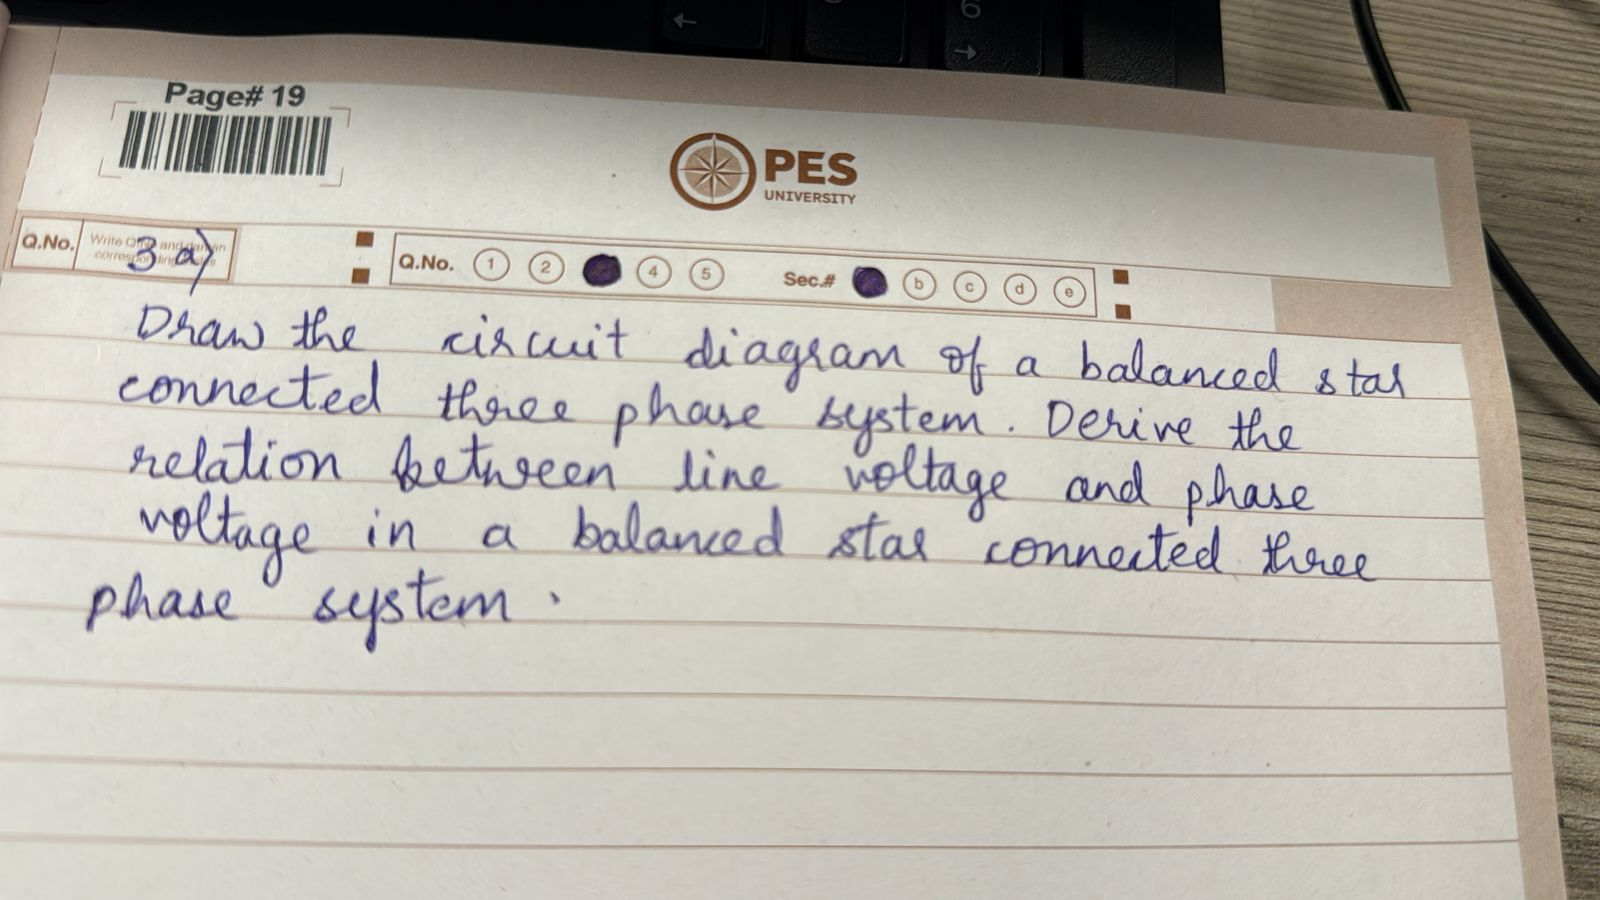 6
Page# 19
PES
UNIVERSITY
Q.No. 3 a)
Q.No. 1 2 4 5 Sec.# b c d e
Draw the circuit diagram of a balanced star
connected three phase system. Derive the
relation between line voltage and phase
voltage in a balanced star connected three
phase system.